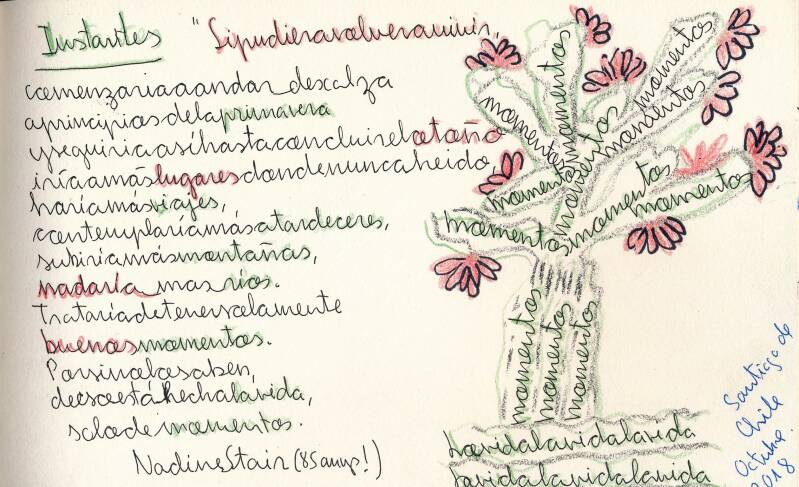 Instantes "Si pudiera volver a vivir,
comenzaria a andar descalza
a principios de la primavera
y seguiria asi hasta concluir el otoño
iría a más lugares donde nunca he ido
haría más viajes,
contemplaría más atardeceres,
subiría más montañas,
nadaría mas ríos.
Trataría de tener solamente
buenos momentos.
Por si no lo saben,
de eso está hecha la vida,
solo de momentos.
Nadine Stair (85 !)
momentos
momentos
momentos
momentos
momentos
momentos
momentos
momentos
momentos
momentos
momentos
momentos
momentos
la vida la vida la vida
la vida la vida la vida
Santiago de
Chile
Octubre
2018